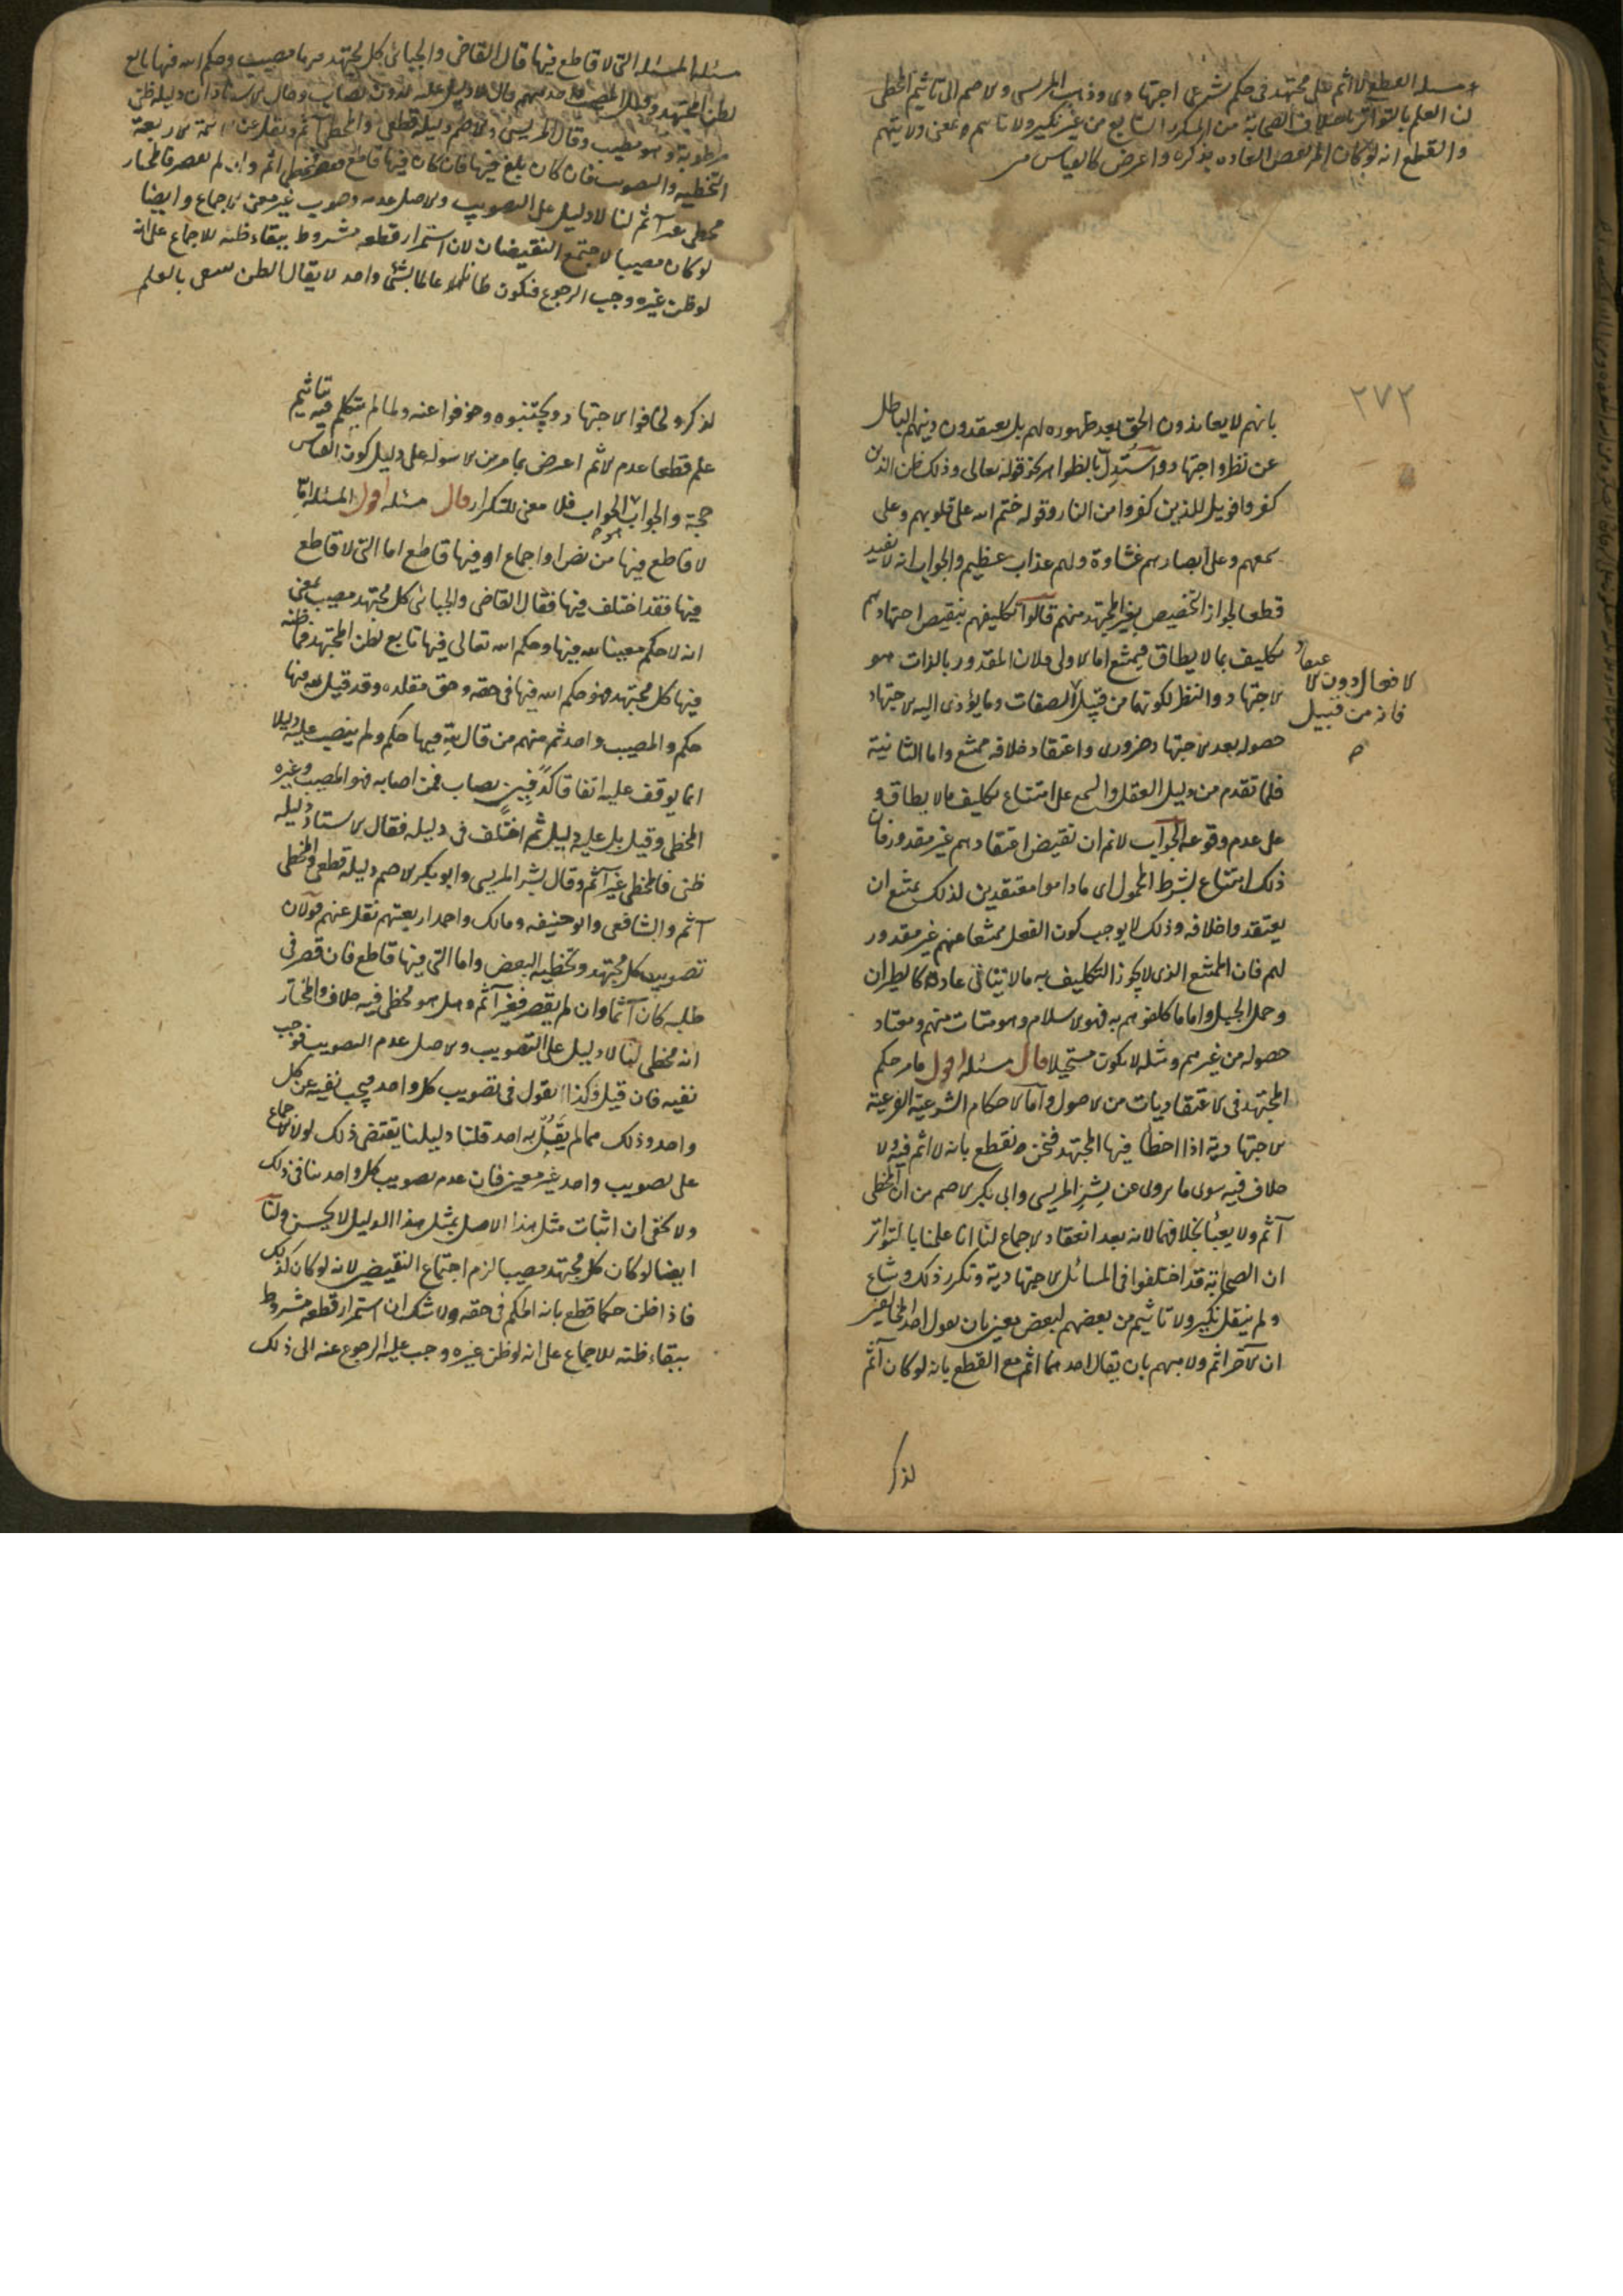 مسئلة القطع لا اثم على مجتهد فى حكم شرعى اجتهادى وذهب المريسى والاصم الى تاثيم المخطى
لنا العلم بالتواتر باختلاف الصحابة من المتكرر الشايع من غير نكير ولا تاثيم لمعين ولا مبهم
والقطع انه لو كان اثم لقضت العادة بذكره واعترض كالقياس
٢٧٢
بانهم لا يعاندون الحق بعد ظهوره لهم بل يعتقدون دينهم الباطل
عن نظر واجتهاد واستدل بالظواهر كقوله تعالى وذلك ظن الذين
كفروا فويل للذين كفروا من النار وقوله ختم الله على قلوبهم وعلى
سمعهم وعلى ابصارهم غشاوة ولهم عذاب عظيم والجواب انه لا تفيد
قطعا لجواز التخصيص بغير المجتهد منهم قالوا تكليفهم بنقيض اجتهادهم
تكليف بما لا يطاق فيمتنع اما الاولى فلان المقدور بالذات هو
الاجتهاد والنظر لكونهما من قبيل الصفات وما يؤدى اليه الاجتهاد
لافعال دون الاعتقاد
فانه من قبيل
حصوله بعد الاجتهاد ضرورى واعتقاد خلافه ممتنع واما الثانية
فلما تقدم من دليل العقل والسمع على امتناع تكليف ما لا يطاق و
على عدم وقوعه الجواب لا نم ان نقيض اعتقادهم غير مقدور فان
ذلك امتناع بشرط المحمول اى ما داموا معتقدين لذلك يمتنع ان
يعتقدوا خلافه وذلك لا يوجب كون الفعل ممتنعا منهم غير مقدور
لهم فان الممتنع الذى لا يجوز التكليف به ما لا يتاتى عادة كالطيران
وحمل الجبل واما ما كلفوهم به فهو الاسلام وهو متات منهم ومعتاد
حصوله من غيرهم ومثله لا يكون مستحيلا قال مسئله اقول ما مر حكم
المجتهد فى الاعتقاديات من الاصول واما الاحكام الشرعية الفرعية
الاجتهادية اذا اخطا فيها المجتهد فنحن نقطع بانه لا اثم فيه ولا
خلاف فيه سوى ما يروى عن بشر المريسى وابى بكر الاصم من ان المخطى
آثم ولا يعبأ بخلافهما لانه بعد انعقاد الاجماع لنا انا علمنا بالتواتر
ان الصحابة قد اختلفوا فى المسائل الاجتهادية وتكرر ذلك وشاع
ولم ينقل نكير ولا تاثيم من بعضهم لبعض معين بان يقول احد المخالفين
ان الآخر اثم ولا مبهم بان يقال احدهما اثم مع القطع بانه لو كان آثم
لذكر
مسئلة المسئلة التى لا قاطع فيها قال القاضى والجبائى كل مجتهد فيها مصيب وحكم الله فيها تابع
لظن المجتهد وقيل المصيب واحد منهم من قال لا دليل عليه كدفين يصاب وقال الاستاذ ان دليله ظنى
وقال المريسى والاصم دليله قطعى والمخطى آثم ونقل عن الائمة الاربعة
التخطيه والتصويب فان كان فيها قاطع فقصر فمخطى اثم وان لم يقصر فالمختار
مخطى غير آثم لنا لا دليل على التصويب والاصل عدمه وصوب غير معين للاجماع وايضا
لو كان مصيبا لاجتمع النقيضان لان استمرار قطعه مشروط ببقاء ظنه للاجماع على انه
لو ظن غيره وجب الرجوع فيكون ظانا عالما بشئ واحد لا يقال الظن ينتفى بالعلم
لذكر ولخافوا الاجتهاد ويجتنبوه وخوفوا عنه ولما لم يتكلم فيه تاثيم
علم قطعا عدم الاثم اعترض بما مر من الاسولة على دليل كون القياس
حجة والجواب الجواب فلا معنى للتكرار قال مسئله اقول المسئلة اما
لا قاطع فيها من نص او اجماع او فيها قاطع اما التى لا قاطع
فيها فقد اختلف فيها فقال القاضى والجبائى كل مجتهد مصيب بمعنى
انه لا حكم معينا لله فيها وحكم الله تعالى فيها تابع لظن المجتهد فما ظنه
فيها كل مجتهد فهو حكم الله فيها فى حقه وحق مقلده وقد قيل لله فيها
حكم والمصيب واحد ثم منهم من قال لله فيها حكم ولم ينصب عليه دليلا
انما يوقف عليه اتفاقا كدفين يصاب فمن اصابه فهو المصيب وغيره
المخطى وقيل بل عليه دليل ثم اختلف فى دليله فقال الاستاذ دليله
ظنى فالمخطى غير آثم وقال بشر المريسى وابو بكر الاصم دليله قطعى والمخطى
آثم والشافعى وابو حنيفه ومالك واحمد اربعتهم نقل عنهم قولان
تصويب كل مجتهد وتخطيه البعض واما التى فيها قاطع فان قصر فى
طلبه كان آثما وان لم يقصر فغير آثم وهل هو مخطى فيه خلاف والمختار
انه مخطى لنا لا دليل على التصويب والاصل عدم التصويب فوجب
نفيه فان قيل وكذا نقول فى تصويب كل واحد فيجب نفيه عن كل
واحد وذلك مما لم يقل به احد قلنا دليلنا يقتضى ذلك لولا الاجماع
على تصويب واحد غير معين فان عدم تصويب كل واحد ينافى ذلك
ولا يخفى ان اثبات مثل هذا الاصل بمثل هذا الدليل لا يحسن ولنا
ايضا لو كان كل مجتهد مصيبا لزم اجتماع النقيضين لانه لو كان كذلك
فاذا ظن حكما قطع بانه الحكم فى حقه ولا شك ان استمرار قطعه مشروط
ببقاء ظنه للاجماع على انه لو ظن غيره وجب عليه الرجوع عنه الى ذلك